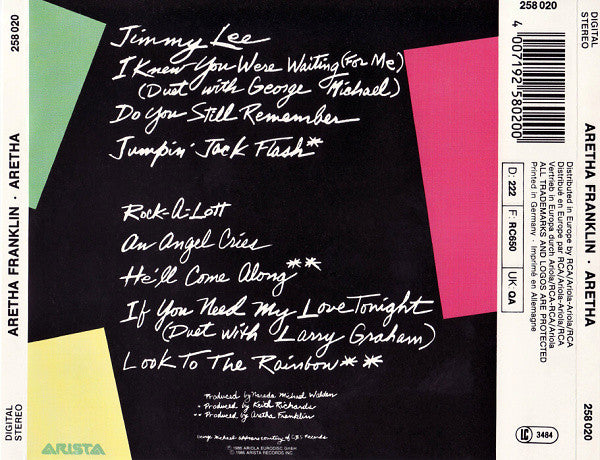 258 020
ARETHA FRANKLIN · ARETHA
DIGITAL
STEREO
Jimmy Lee
I Knew You Were Waiting (For Me)
(Duet with George Michael)
Do You Still Remember
Jumpin' Jack Flash*
Rock-A-Lott
An Angel Cries
He'll Come Along**
If You Need My Love Tonight
(Duet with Larry Graham)
Look To The Rainbow**
Produced by Narada Michael Walden
* Produced by Keith Richards
** Produced by Aretha Franklin
George Michael appears courtesy of CBS Records
℗ 1986 ARIOLA EURODISC GMBH
© 1986 ARISTA RECORDS INC
ARISTA
258 020
DIGITAL
STEREO
4 007192 580200
D: 222
F: RC650
UK: QA
Distributed in Europe by RCA/Ariola-Ariola/RCA
Distribué en Europe par RCA/Ariola-Ariola/RCA
Vertrieb in Europa durch Ariola/RCA-RCA/Ariola
ALL TRADEMARKS AND LOGOS ARE PROTECTED
Printed in Germany · Imprimé en Allemagne
LC 3484
ARETHA FRANKLIN · ARETHA
258 020